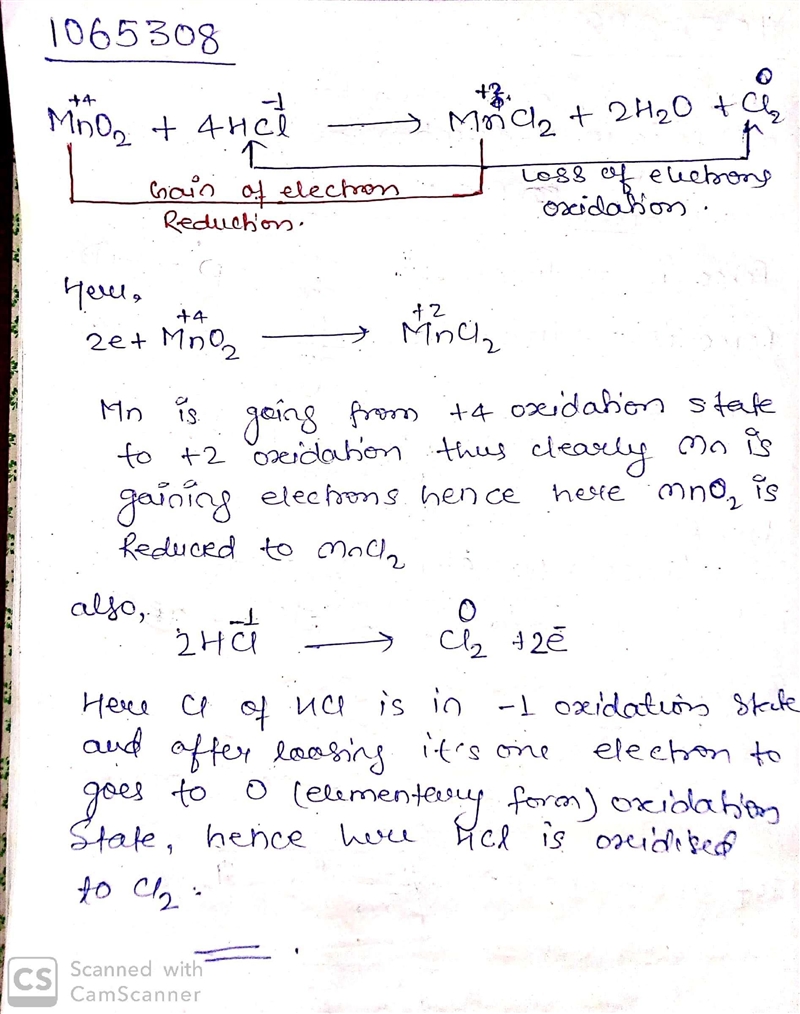 1065308
+4 -1 +2 0
MnO2 + 4HCl → MnCl2 + 2H2O + Cl2
Gain of electron
Reduction.
Loss of electrons
oxidation.
Here,
+4 +2
2e + MnO2 → MnCl2
Mn is going from +4 oxidation state
to +2 oxidation thus clearly Mn is
gaining electrons hence here MnO2 is
Reduced to MnCl2
also,
-1 0
2HCl → Cl2 + 2ē
Here Cl of HCl is in -1 oxidation state
and after loosing it's one electron to
goes to 0 (elementery form) oxidation
State, hence here HCl is oxidised
to Cl2.
CS Scanned with
CamScanner